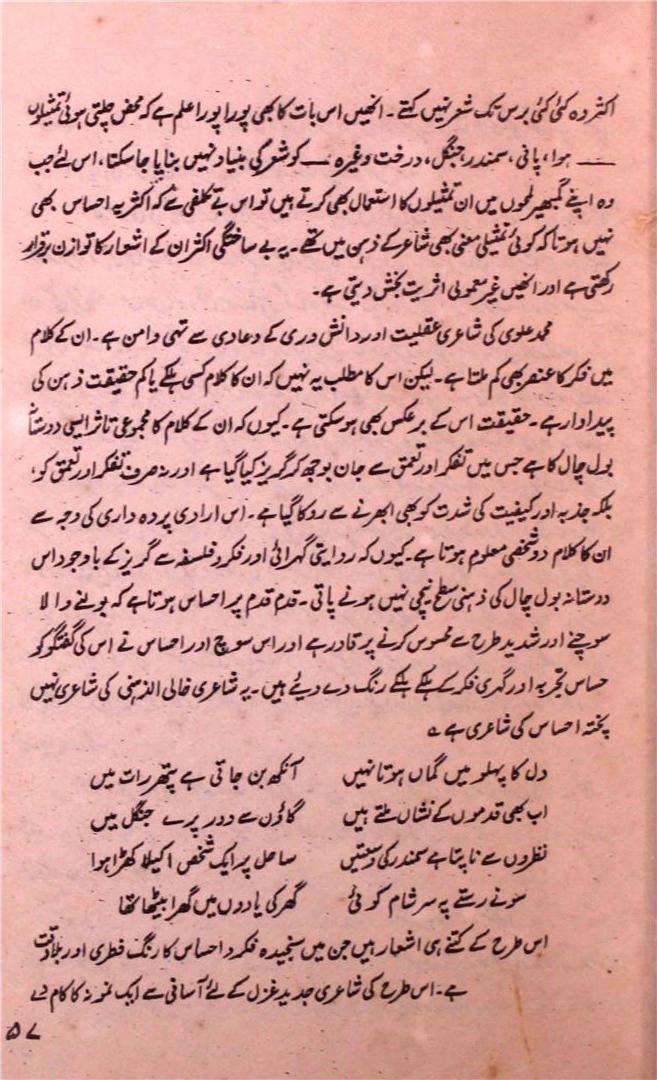 اکثر وہ کئی کئی برس تک شعر نہیں کہتے ۔ انھیں اس بات کا بھی پورا پورا علم ہے کہ محض چلتی ہوئی تمثیلوں
— ہوا، پانی، سمندر، جنگل، درخت وغیرہ — کو شعر کی بنیاد نہیں بنایا جا سکتا، اس لئے جب
وہ اپنے گمبھیر لمحوں میں ان تمثیلوں کا استعمال بھی کرتے ہیں تو اس بے تکلفی سے کہ اکثر یہ احساس بھی
نہیں ہوتا کہ کوئی تمثیلی معنی بھی شاعر کے ذہن میں تھے ۔ یہ بے ساختگی اکثر ان کے اشعار کا توازن برقرار
رکھتی ہے اور انھیں غیر معمولی اثریت بخش دیتی ہے ۔
محمد علوی کی شاعری عقلیت اور دانش وری کے دعاوی سے تہی دامن ہے ۔ ان کے کلام
میں فکر کا عنصر بھی کم ملتا ہے ۔ لیکن اس کا مطلب یہ نہیں کہ ان کا کلام کسی ہلکے یا کم حقیقت ذہن کی
پیداوار ہے ۔ حقیقت اس کے برعکس بھی ہو سکتی ہے ۔ کیوں کہ ان کے کلام کا مجموعی تاثر ایسی دوستانہ
بول چال کا ہے جس میں تفکر اور تعمق سے جان بوجھ کر گریز کیا گیا ہے اور نہ صرف تفکر اور تعمق کو،
بلکہ جذبہ اور کیفیت کی شدت کو بھی ابھرنے سے روکا گیا ہے ۔ اس ارادی پردہ داری کی وجہ سے
ان کا کلام دو شخصی معلوم ہوتا ہے ۔ کیوں کہ روایتی گہرائی اور فکر و فلسفہ سے گریز کے باوجود اس
دوستانہ بول چال کی ذہنی سطح نیچی نہیں ہونے پاتی ۔ قدم قدم پر احساس ہوتا ہے کہ بولنے والا
سوچنے اور شدید طرح سے محسوس کرنے پر قادر ہے اور اس سوچ اور احساس نے اس کی گفتگو کو
حساس تجربہ اور گہری فکر کے ہلکے ہلکے رنگ دے دیئے ہیں ۔ یہ شاعری خالی الذہنی کی شاعری نہیں
پختہ احساس کی شاعری ہے ؎
دل کا پہلو میں گماں ہوتا نہیں آنکھ بن جاتی ہے پتھر رات میں
اب بھی قدموں کے نشاں ملتے ہیں گاؤں سے دور پرے جنگل میں
نظروں سے ناپتا ہے سمندر کی وسعتیں ساحل پر ایک شخص اکیلا کھڑا ہوا
سونے رستے پہ سر شام کوئی گھر کی یادوں میں گھرا بیٹھا تھا
اس طرح کے کتنے ہی اشعار ہیں جن میں سنجیدہ فکر و احساس کا رنگ فطری اور بلاوقت
ہے ۔ اس طرح کی شاعری جدید غزل کے لئے آسانی سے ایک نمونہ کا کام دے
۵۷